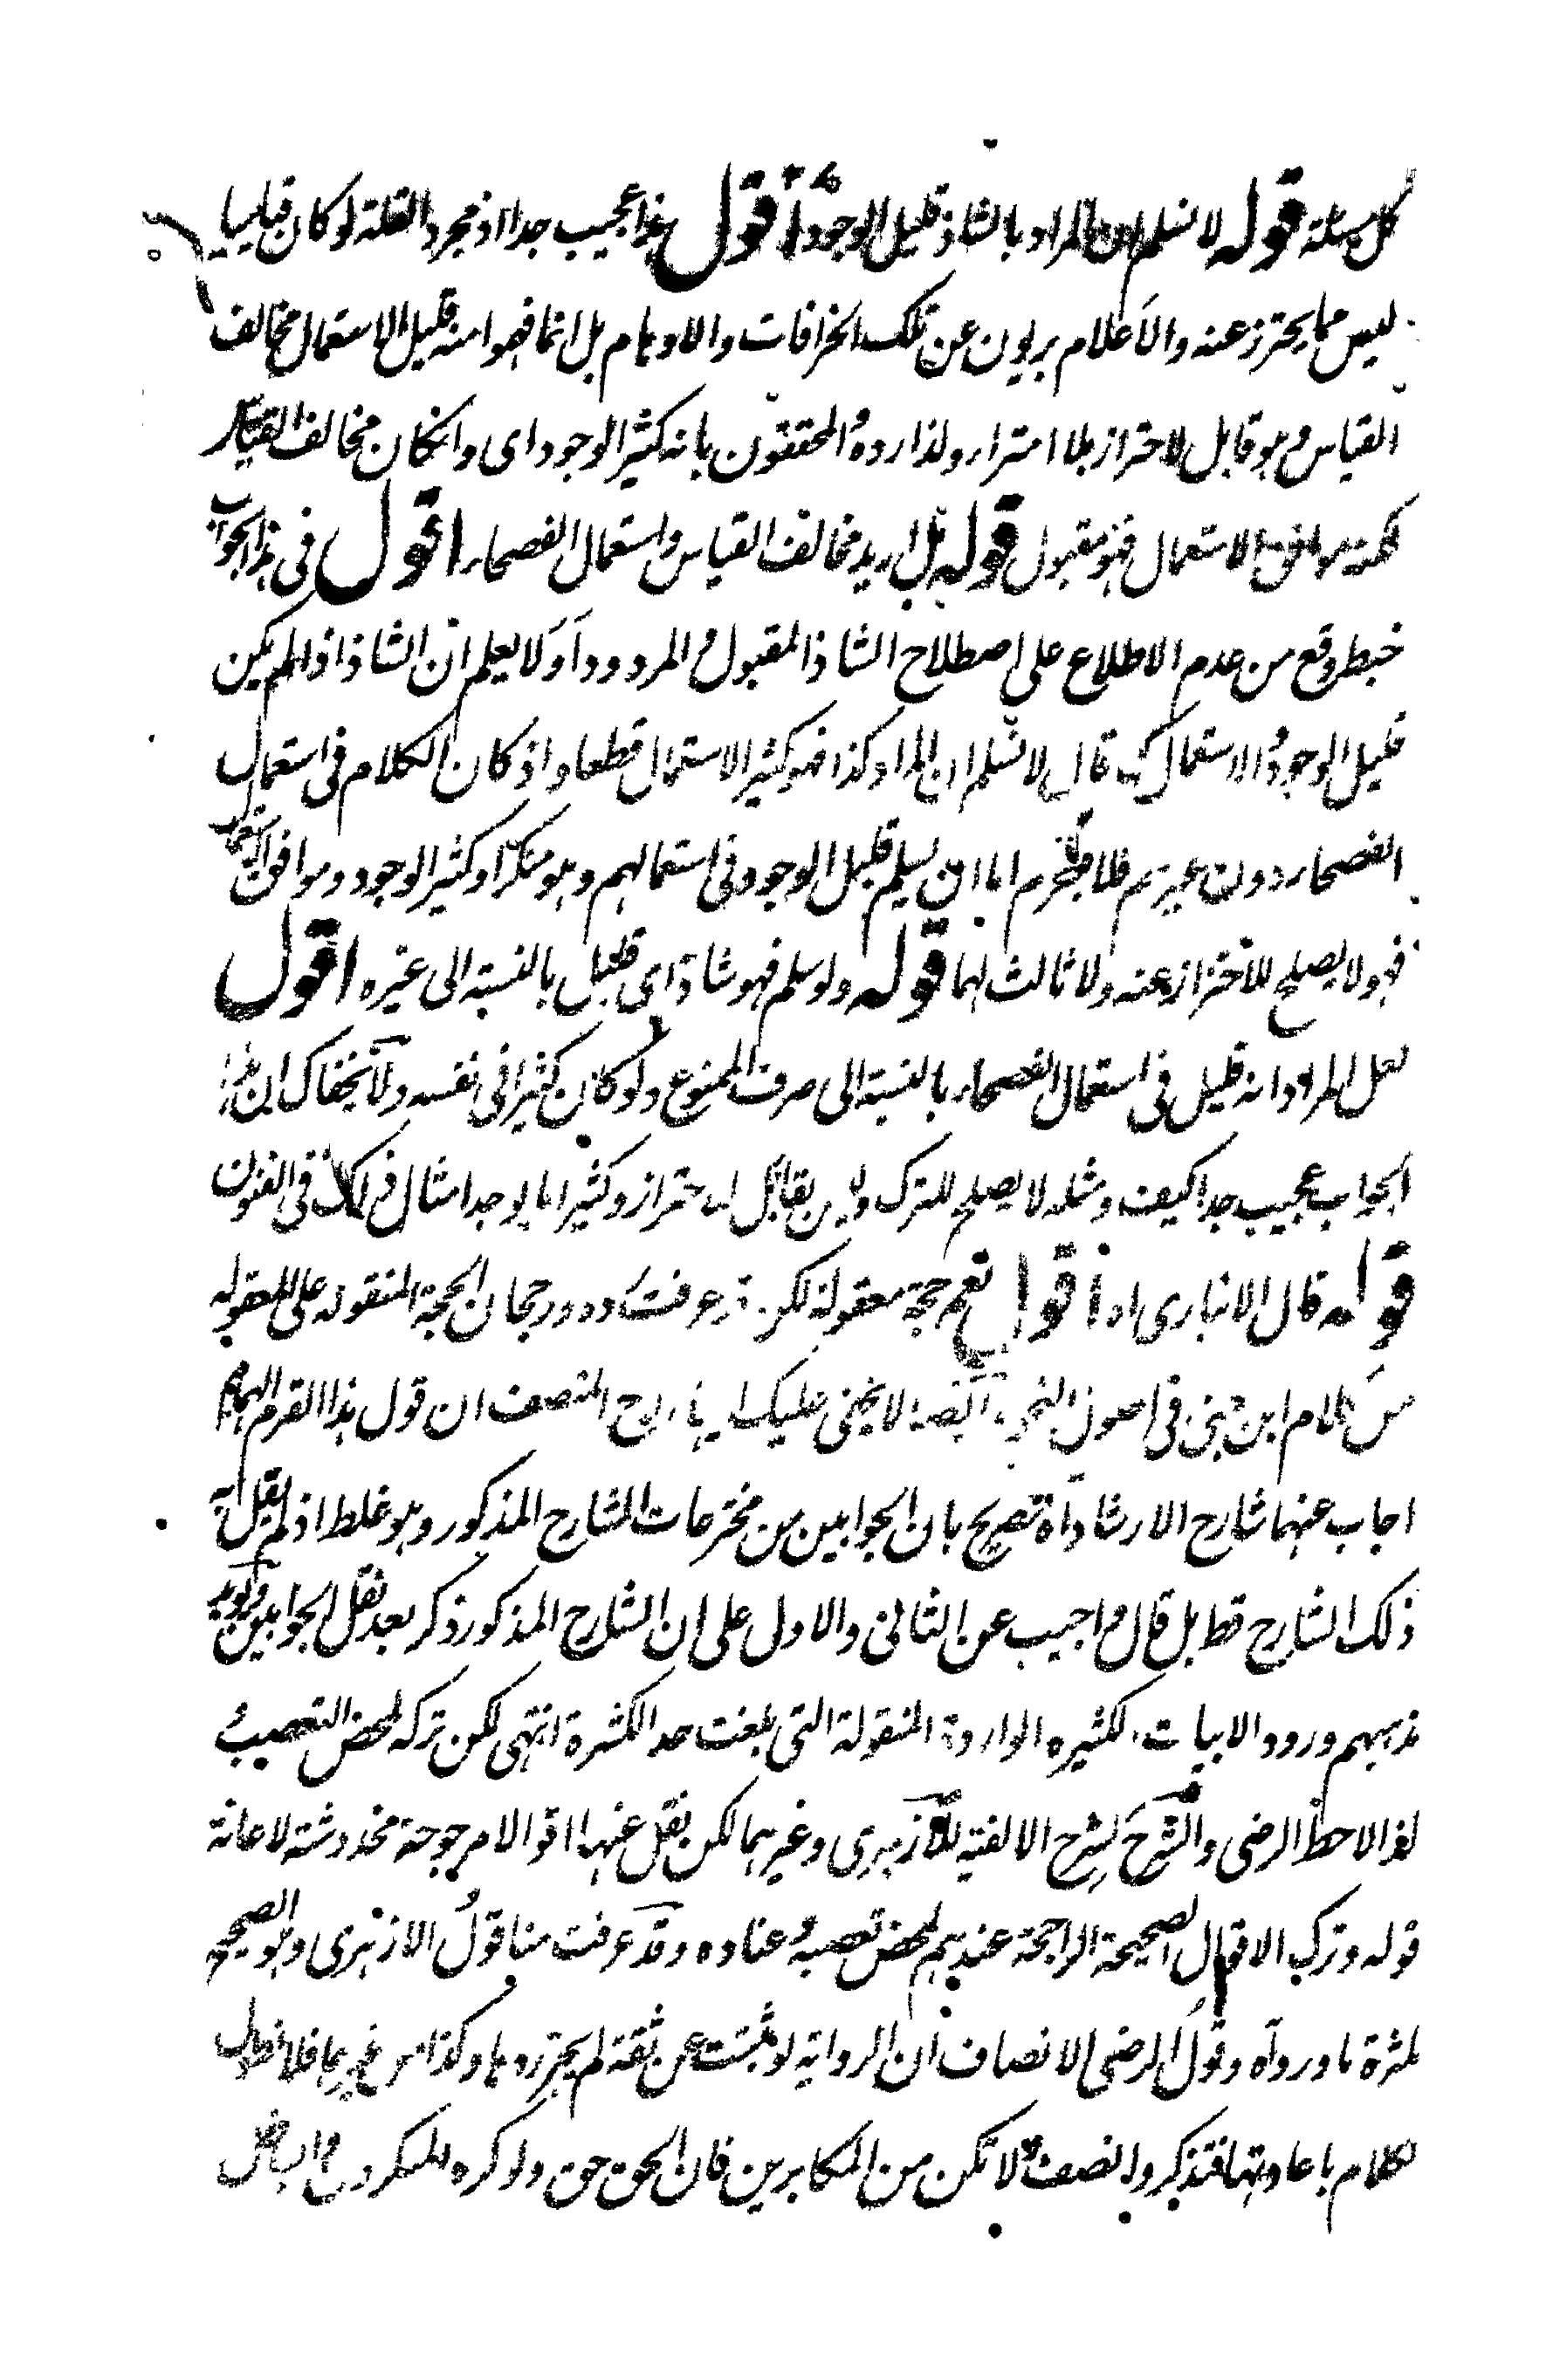 كل مسئلة قوله لا نسلم ان المراد بالشاذ قليل الوجود اه اقول هذا عجيب جدا اذ مجرد القلة لو كان قياسيا
ليس مما يحترز عنه والاعلام بريون عن تلك الخرافات والاوهام بل انما فهموا منه قليل الاستعمال مخالف
القياس وهو قابل للاحتراز بلا امتراء ولذا رده المحققون بانه كثير الوجود اى وانكان مخالف القياس
لكنه موافق الاستعمال فهو مقبول قوله بل اريد مخالف القياس واستعمال الفصحاء اقول فى هذا الجواب
خبط وقع من عدم الاطلاع على اصطلاح الشاذ المقبول والمردود أولا يعلم ان الشاذ اذا لم يكن
قليل الوجود والاستعمال كما قال لا نسلم ان المراد كذا فهو كثير الاستعمال قطعا واذ كان الكلام فى استعمال
الفصحاء دون غيرهم فلا جرم اما ان يسلم قليل الوجود فى استعمالهم وهو منكر او كثير الوجود وموافق استعمالهم
فهو لا يصلح للاحتراز عنه ولا ثالث لهما قوله ولو سلم فهو شاذ اى قليل بالنسبة الى غيره اقول
لعل المراد انه قليل فى استعمال الفصحاء بالنسبة الى صرف الممنوع ولو كان كثيرا فى نفسه ولا يخفاك ان هذا
الجواب عجيب جدا كيف ومثله لا يصلح للترك وليس بقابل الاحتراز وكثيرا ما يوجد امثال ذلك فى الفنون
قوله قال الانبارى اه اقول نعم حجة معقولة لكن قد عرفت رده ورجحان الحجة المنقولة على المعقولة
من كلام ابن جنى فى اصول النحو لا يخفى عليك ايها المنصف ان قول هذا القرم الهمام
اجاب عنهما شارح الارشاد اه تصريح بان الجوابين من مخترعات الشارح المذكور وهو غلط اذ لم يقل به
ذلك الشارح قط بل قال واجيب عن الثانى والاول على ان الشارح المذكور ذكر بعد نقل الجوابين ويؤيد
مذهبهم ورود الابيات الكثيره الواردة المنقولة التى بلغت حد الكثرة انتهى لكن تركه لمحض التعصب و
لذا لاحظ الرضى والشرح لشرح الالفيه للازهرى وغيرهما لكن نقل عنها اقوالا مرجوحة مخدوشة لاعانة
قوله وترك الاقوال الصحيحة الراجحة عندهم لمحض تعصبه وعناده وقد عرفت منا قول الازهرى وهو الصحيح
لكثرة ما ورد اه وقول الرضى الانصاف ان الرواية لو ثبتت عن ثقة لم يجز ردها وكذا من غيرهما فلا نطول
الكلام باعادتها فتذكر وانصف ولا تكن من المكابرين فان الحق حق ولو كره المنكرون والباطل